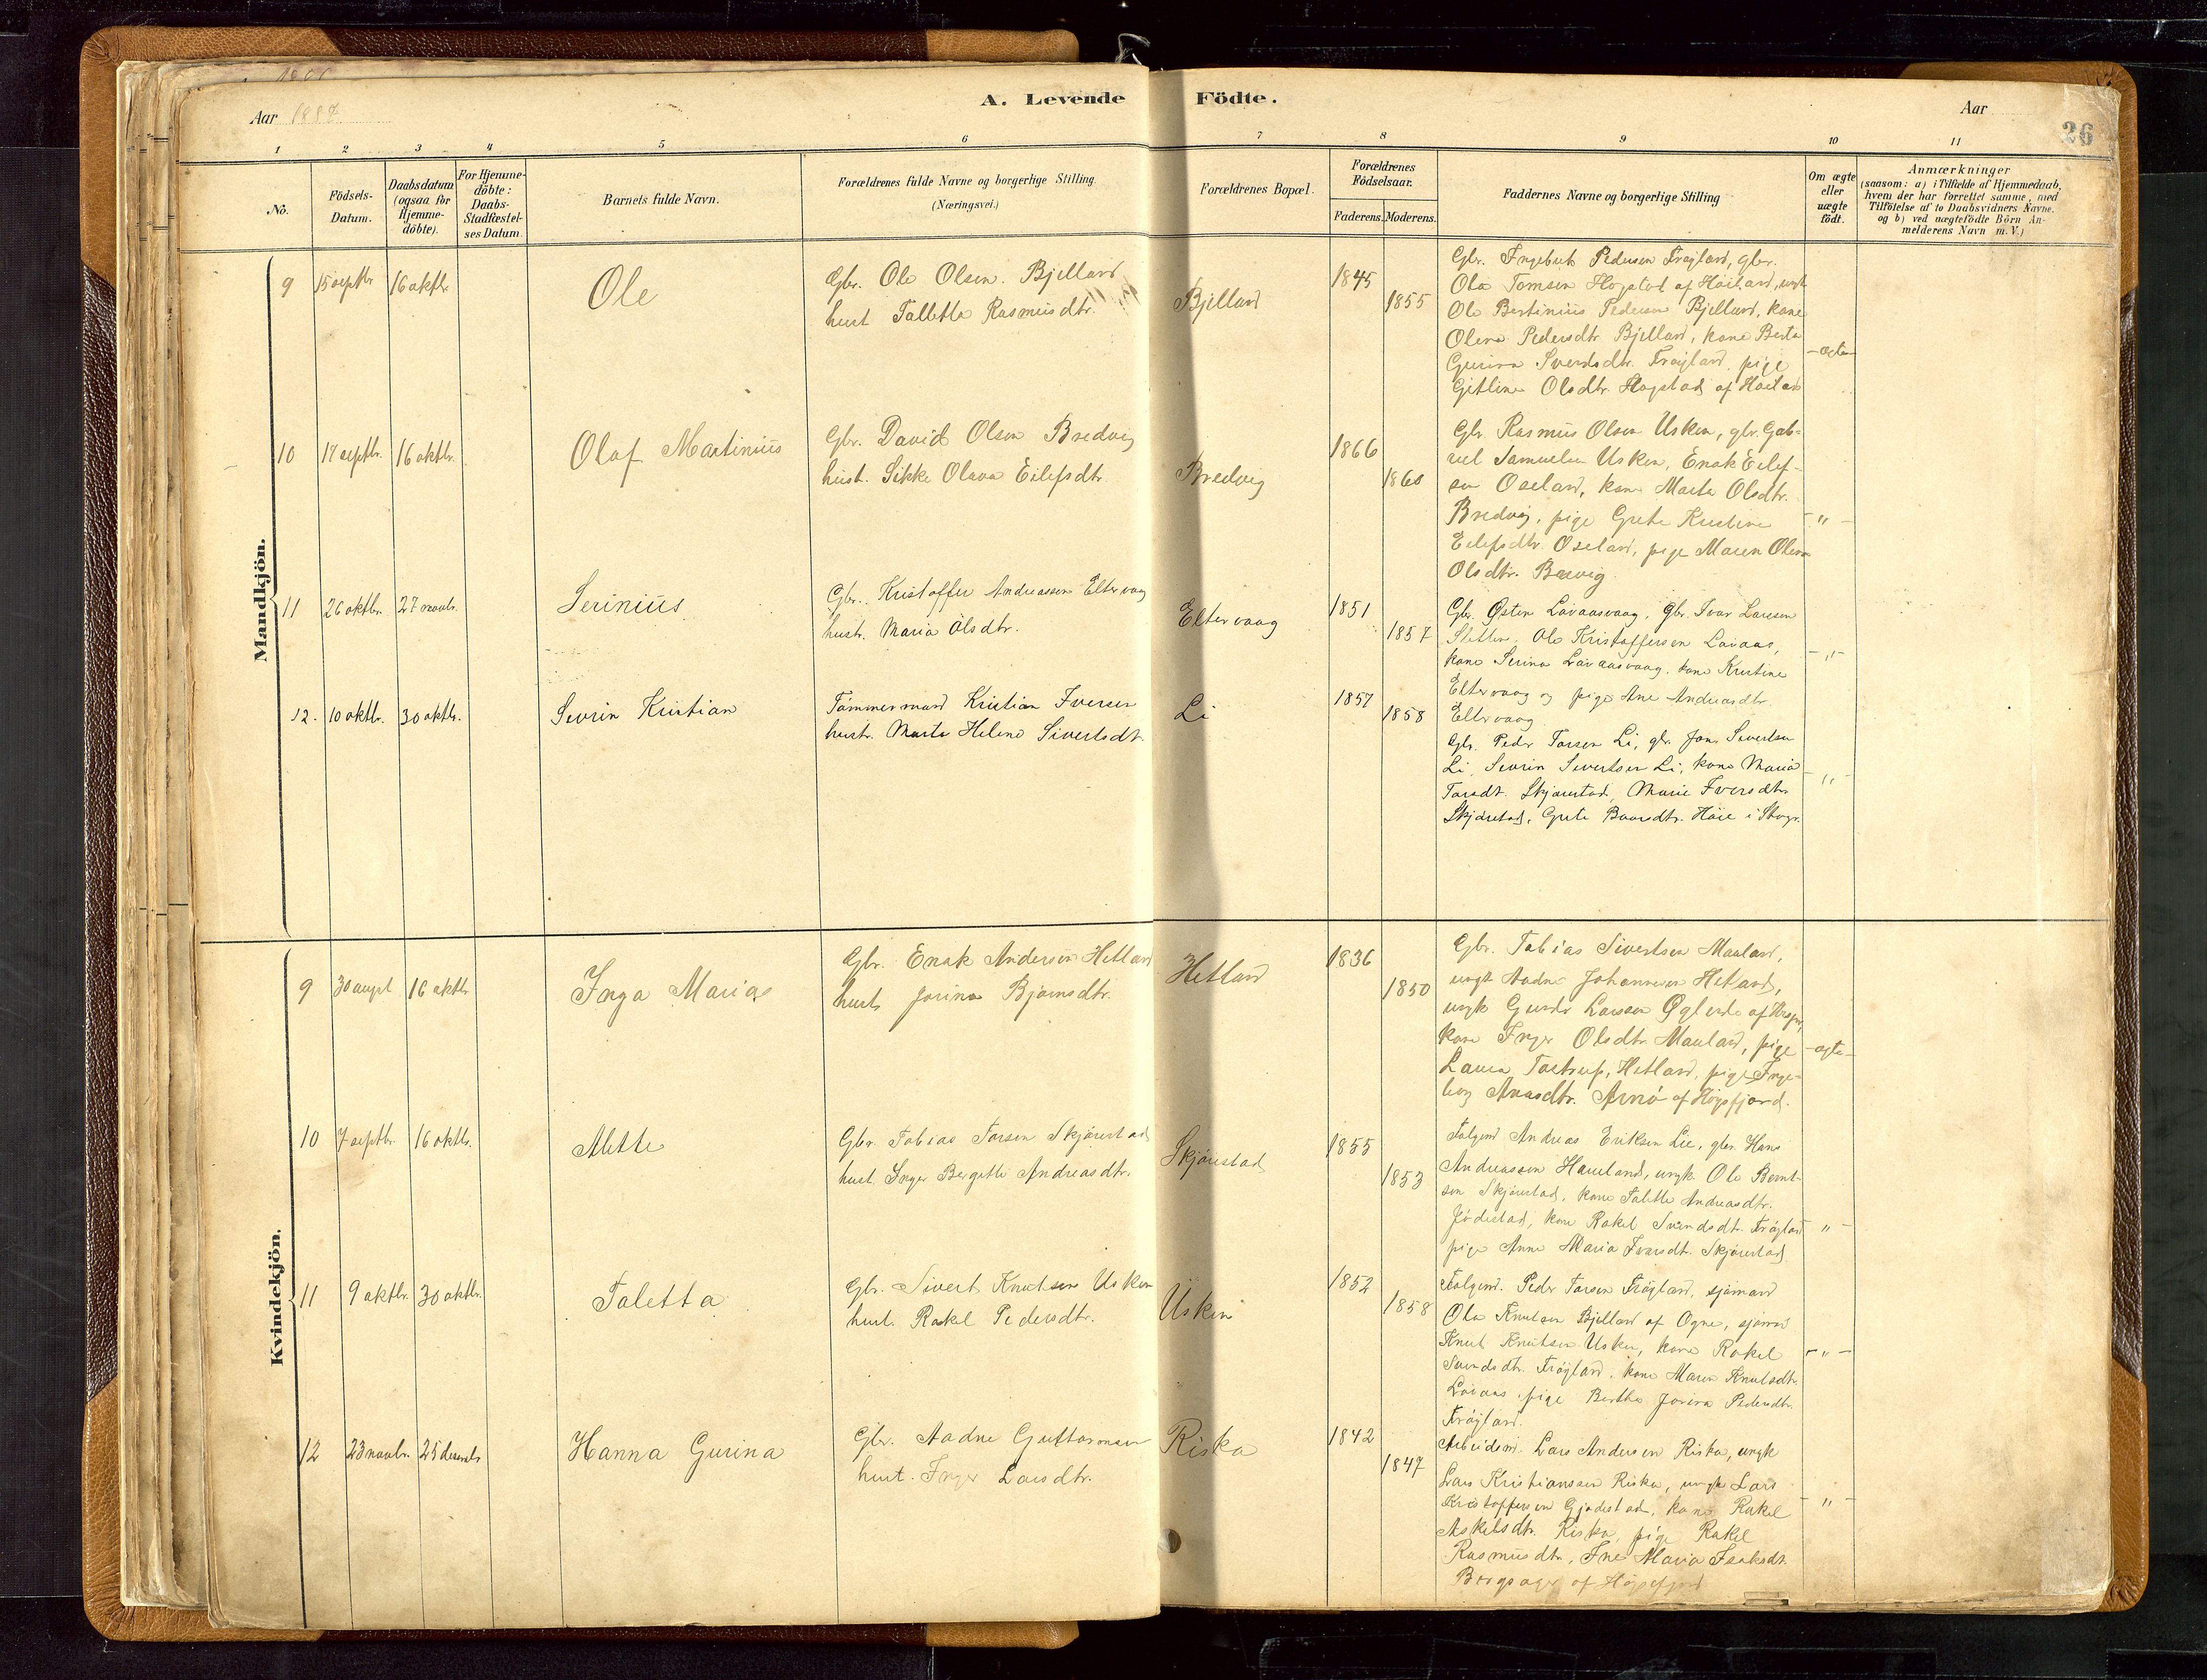 Aar 1887
A. Levende Födte.
Aar
26
1 2 3 4 5 6 7 8 9 10 11
No.
Födsels-Datum.
Daabsdatum (ogsaa for Hjemme-döbte).
For Hjemme-döbte: Daabs-Stadfæstel-ses Datum.
Barnets fulde Navn.
Forældrenes fulde Navne og borgerlige Stilling. (Næringsvei.)
Forældrenes Bopæl.
Forældrenes Födselsaar.
Faderens. Moderens.
Faddernes Navne og borgerlige Stilling
Om ægte eller uægte födt.
Anmærkninger
(saasom: a) i Tilfælde af Hjemmedaab,
hvem der har forrettet samme, med
Tilföielse af to Daabsvidners Navne,
og b) ved uægtefödte Börn An-
melderens Navn m. V.)
Mandkjön.
9 15 septbr 16 oktbr. Ole
Gbr. Ole Olsen Bjelland
hust Talletta Rasmusdtr.
Bjelland 1845 1855
Gbr. Ingebret Pedersen Frøyland, gbr.
Ola Tomsen Hogstad af Høiland, ungk
Ole Bertinius Pedersen Bjelland, kone
Olena Pedersdtr Bjelland, kone Berta
Gurina Svendsdtr. Frøyland, pige
Gitline Olsdtr. Hogstad af Høiland
- ægte -
10 17 septbr. 16 oktbr. Olaf Martinius
Gbr. David Olsen Bredvig
hust. Sikke Olava Eilefsdtr
Bredvig 1866 1860
Gbr. Rasmus Olsen Usken, gbr. Gab-
riel Samuelsen Usken, Enok Eilef-
sen Oseland, kone Marta Olsdtr.
Bredvig, pige Grete Kristine
Eilefsdtr. Oseland, pige Maren Olena
Olsdtr.
- " -
11 26 oktbr. 27 novbr. Serinius
Gbr. Kristoffer Andreassen Eltervaag
hustr. Maria Olsdtr.
Eltervaag 1851 1857
Gbr. Østen Lavaasvaag, Gbr. Ivar Larssen
Sletten, Ole Kristoffersen Lavaas,
kone Serina Lavaasvaag, kone Kristine
Eltervaag og pige Ane Andreasdtr.
Eltervaag
- " -
12. 10 oktbr. 30 oktbr. Sevrin Kristian
Tømmermand Kristian Iversen
hustr. Marta Helene Sivertsdt.
Li 1857 1858
Gbr. Peder Torsen Li, gbr. Jon Sivertsen
Li, Sevrin Sivertsen Li, kone Maria
Torsdt. Skjørestad, Marie Iversdtr
Skjørestad, Grete
- " -
Kvindekjön.
9 30 augst 16 oktbr. Inga Maria
Gbr. Enok Andersen Hetland
hust. Jorina Bjørnsdtr.
Hetland 1836 1850
Gbr. Tobias Sivertsen Mauland,
ungk Aadne Johannesen Hetland,
ungk Larssen
kone Inger Olsdtr. Mauland, pige
Laura Tastrup, Hetland, pige Inge-
borg af Høgsfjord.
- ægte -
10 7 septbr. 16 oktbr. Alette
Gbr. Tobias Torsen Skjørestad
hust. Inger Bergitte Andreasdtr.
Skjørestad 1855 1853
Folgemd Andreas Eriksen Lie, gbr. Hans
Andreassen Haueland, ungk. Ole Bernt-
sen Skjørestad, kone Talette Andreasdtr.
Jødestad, kone Rakel Svendsdtr. Frøyland
pige Anne Maria Ivarsdt. Skjørestad
" -
11 9 oktbr. 30 oktbr. Taletta
Gbr. Sivert Knutsen Usken
hust. Rakel Pedersdtr.
Usken 1852 1858
Folgemd. Peder Torsen Frøyland, sjømand
Ola Knutsen Bjelland af Ogne, sjømd
Knut Knutsen Usken, kone Rakel
Svendsdtr. Frøyland, kone Maren Knutsdtr
Lavaas, pige Berthe Jorina Pedersdtr.
Frøyland.
- " -
12 23 novbr. 25 decembr Hanna Gurina
Gbr. Aadne Guttormsen
hust. Inger Larsdtr.
Riska 1842 1847
Arbeidsm. Lars Andersen Riska, ungk
Lars Kristianssen Riska, ungk Lars
Kristoffersen Gjødestad, kone Rakel
Askelsdtr. Riska, pige Rakel
Rasmusdtr, Maria Isaksdt.
af Høgsfjord
- " -